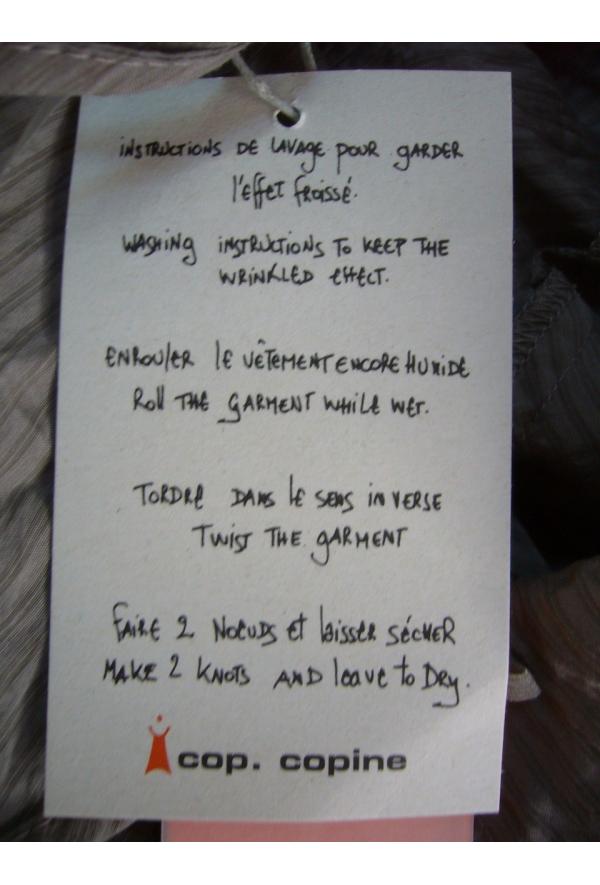 INSTRUCTIONS DE LAVAGE POUR GARDER
l'EFFET FROISSÉ.
WASHING INSTRUCTIONS TO KEEP THE
WRINKLED EFFECT.
ENROULER LE VÊTEMENT ENCORE HUMIDE
ROLL THE GARMENT WHILE WET.
TORDRE DANS LE SENS INVERSE
TWIST THE GARMENT
FAIRE 2 NOEUDS ET LAISSER SÉCHER
MAKE 2 KNOTS AND LEAVE TO DRY.
cop. copine